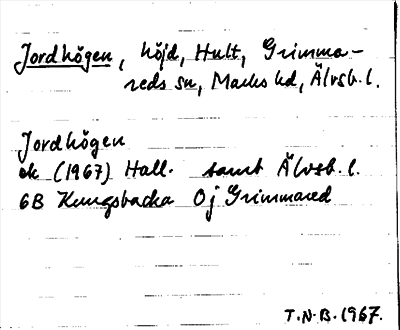 Jordhögen, höjd, Hult, Grimma-
reds sn, Marks hd, Älvsb. l.
Jordhögen
ek (1967) Hall. samt Älvsb. l.
6B Kungsbacka 0j Grimmared
T.N.B. 1967.